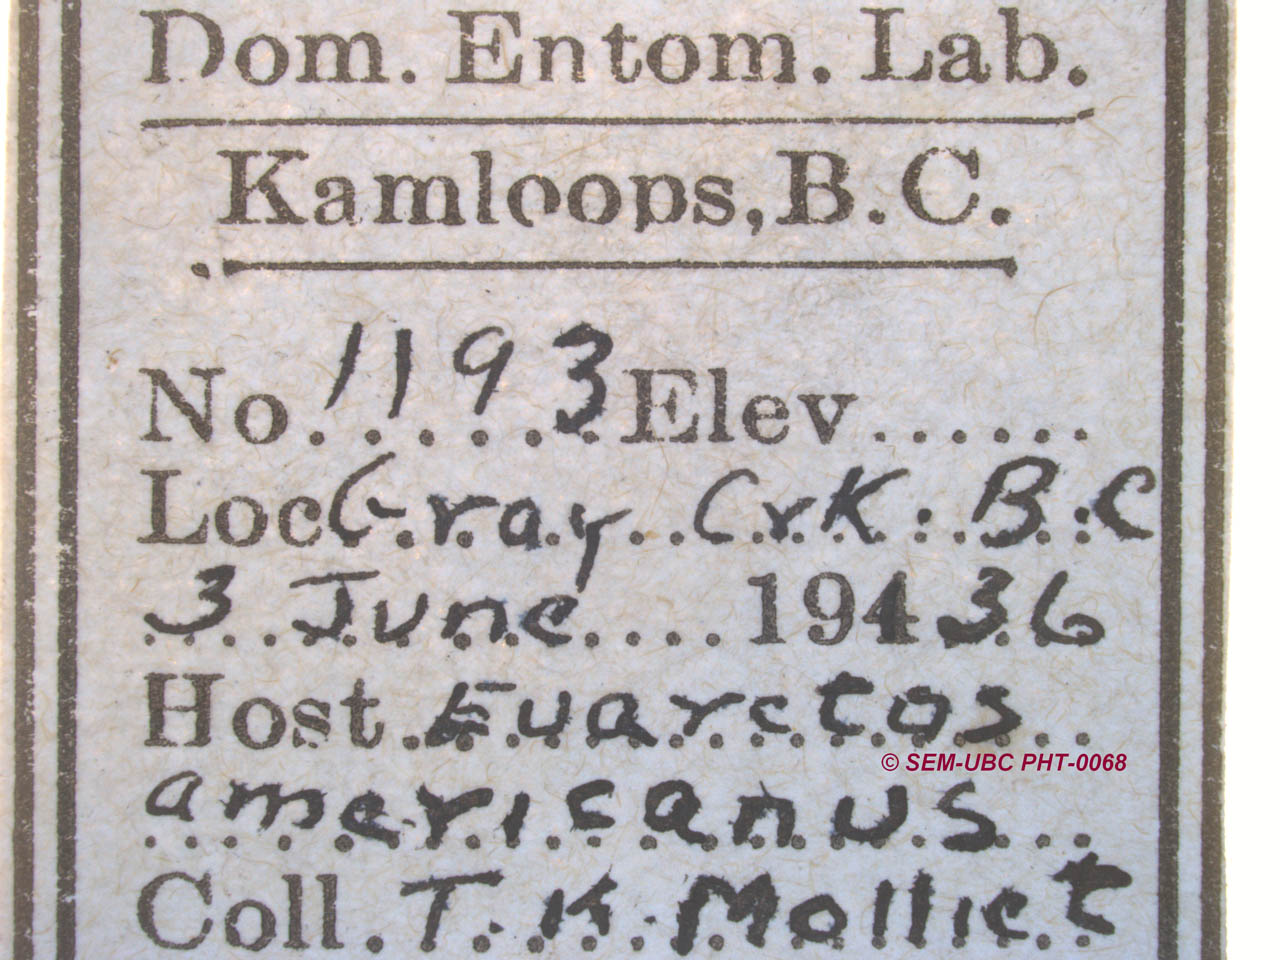 Dom. Entom. Lab.
Kamloops, B.C.
No. 1193 Elev.......
Loc Gray Crk. B.C
3 June 19436
Host Euarctos
© SEM-UBC PHT-0068
americanus
Coll. T. K. Molliet